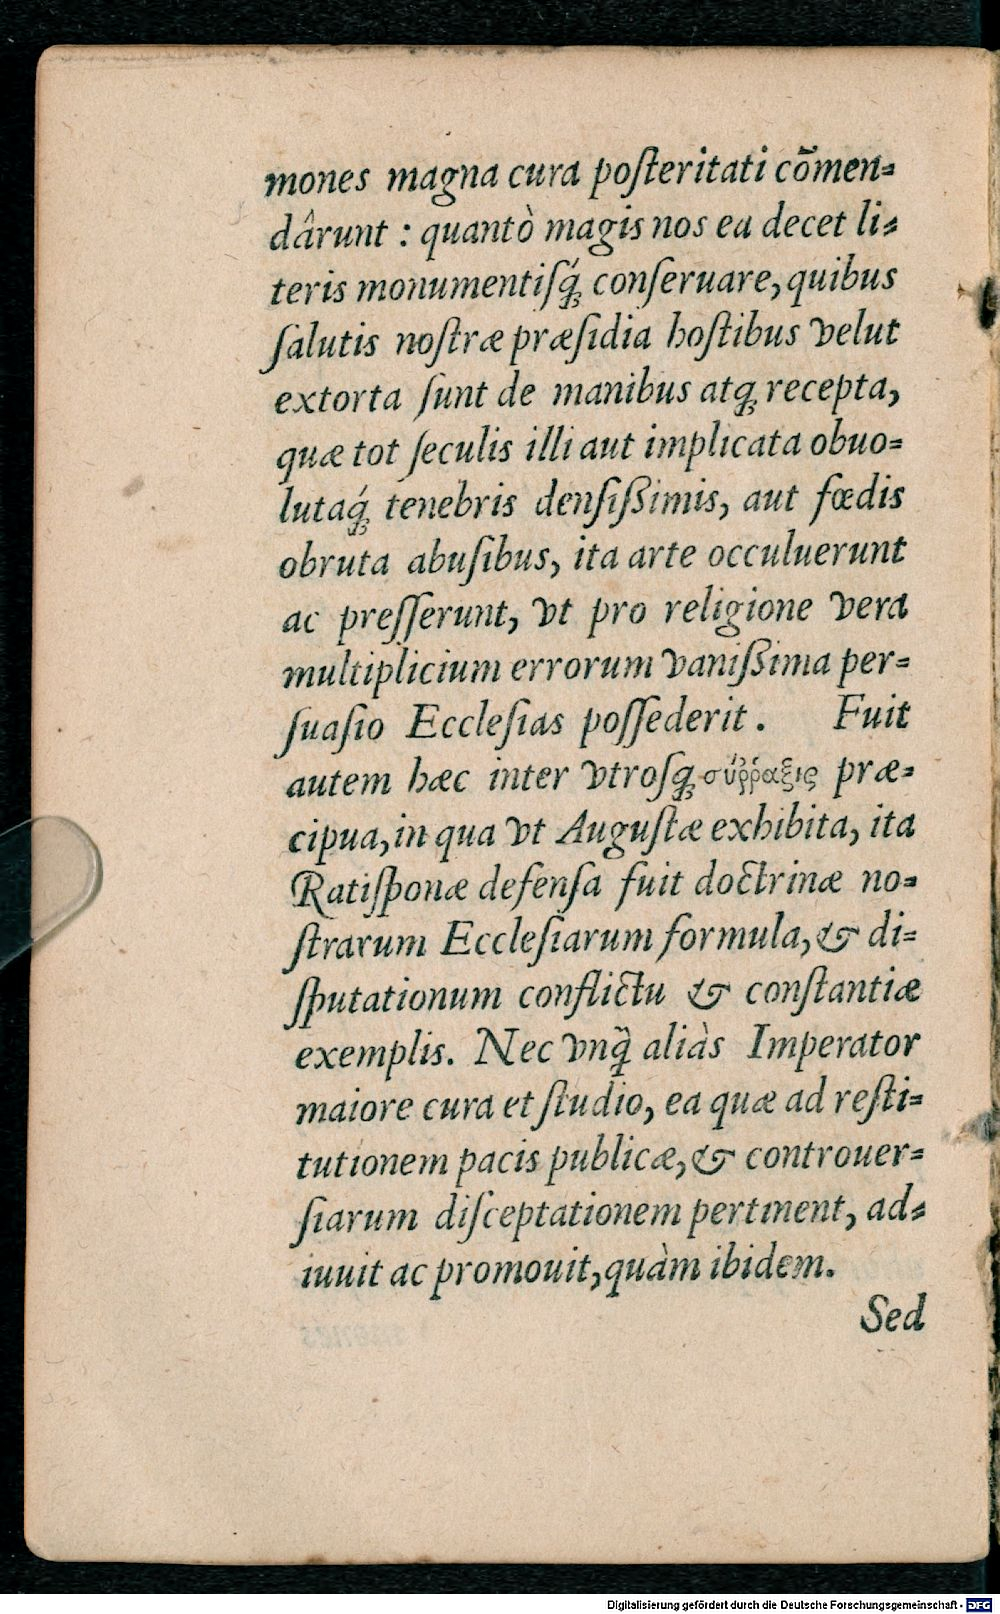 mones magna cura poſteritati cõmen=
dârunt : quantò magis nos ea decet li=
teris monumentiſq́ꝫ conſeruare, quibus
ſalutis noſtræ præſidia hoſtibus velut
extorta ſunt de manibus atqꝫ recepta,
quæ tot ſeculis illi aut implicata obuo=
lutaq́ꝫ tenebris denſiſßimis, aut fœdis
obruta abuſibus, ita arte occuluerunt
ac preſſerunt, vt pro religione vera
multiplicium errorum vaniſßima per=
ſuaſio Eccleſias poſſederit. Fuit
autem hæc inter vtroſqꝫ σύῤῥαξις præ=
cipua, in qua vt Auguſtæ exhibita, ita
Ratiſponæ defenſa fuit doctrinæ no=
ſtrarum Eccleſiarum formula, & di=
ſputationum conflictu & conſtantiæ
exemplis. Nec vnq̃ aliàs Imperator
maiore cura et ſtudio, ea quæ ad reſti=
tutionem pacis publicæ, & controuer=
ſiarum diſceptationem pertinent, ad=
iuuit ac promouit, quàm ibidem.
Sed
Digitalisierung gefördert durch die Deutsche Forschungsgemeinschaft - DFG